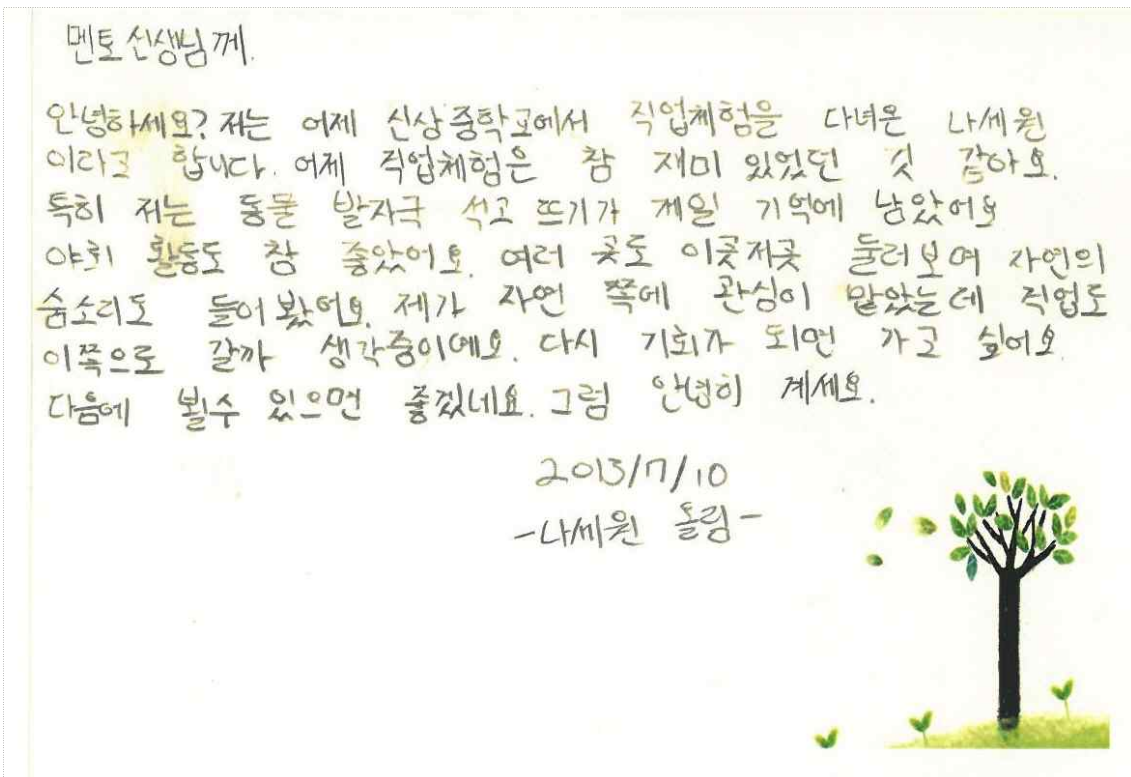 멘토 선생님께.
안녕하세요? 저는 어제 신상중학교에서 직업체험을 다녀온 나세원
이라고 합니다. 어제 직업체험은 참 재미 있었던 것 같아요.
특히 저는 동물 발자국 석고 뜨기가 제일 기억에 남았어요
야외 활동도 참 좋았어요. 여러 곳도 이곳저곳 둘러보며 자연의
숨소리도 들어 봤어요. 제가 자연 쪽에 관심이 많았는데 직업도
이쪽으로 갈까 생각중이예요. 다시 기회가 되면 가고 싶어요
다음에 뵐수 있으면 좋겠네요. 그럼 안녕히 계세요.
2013/7/10
-나세원 올림-